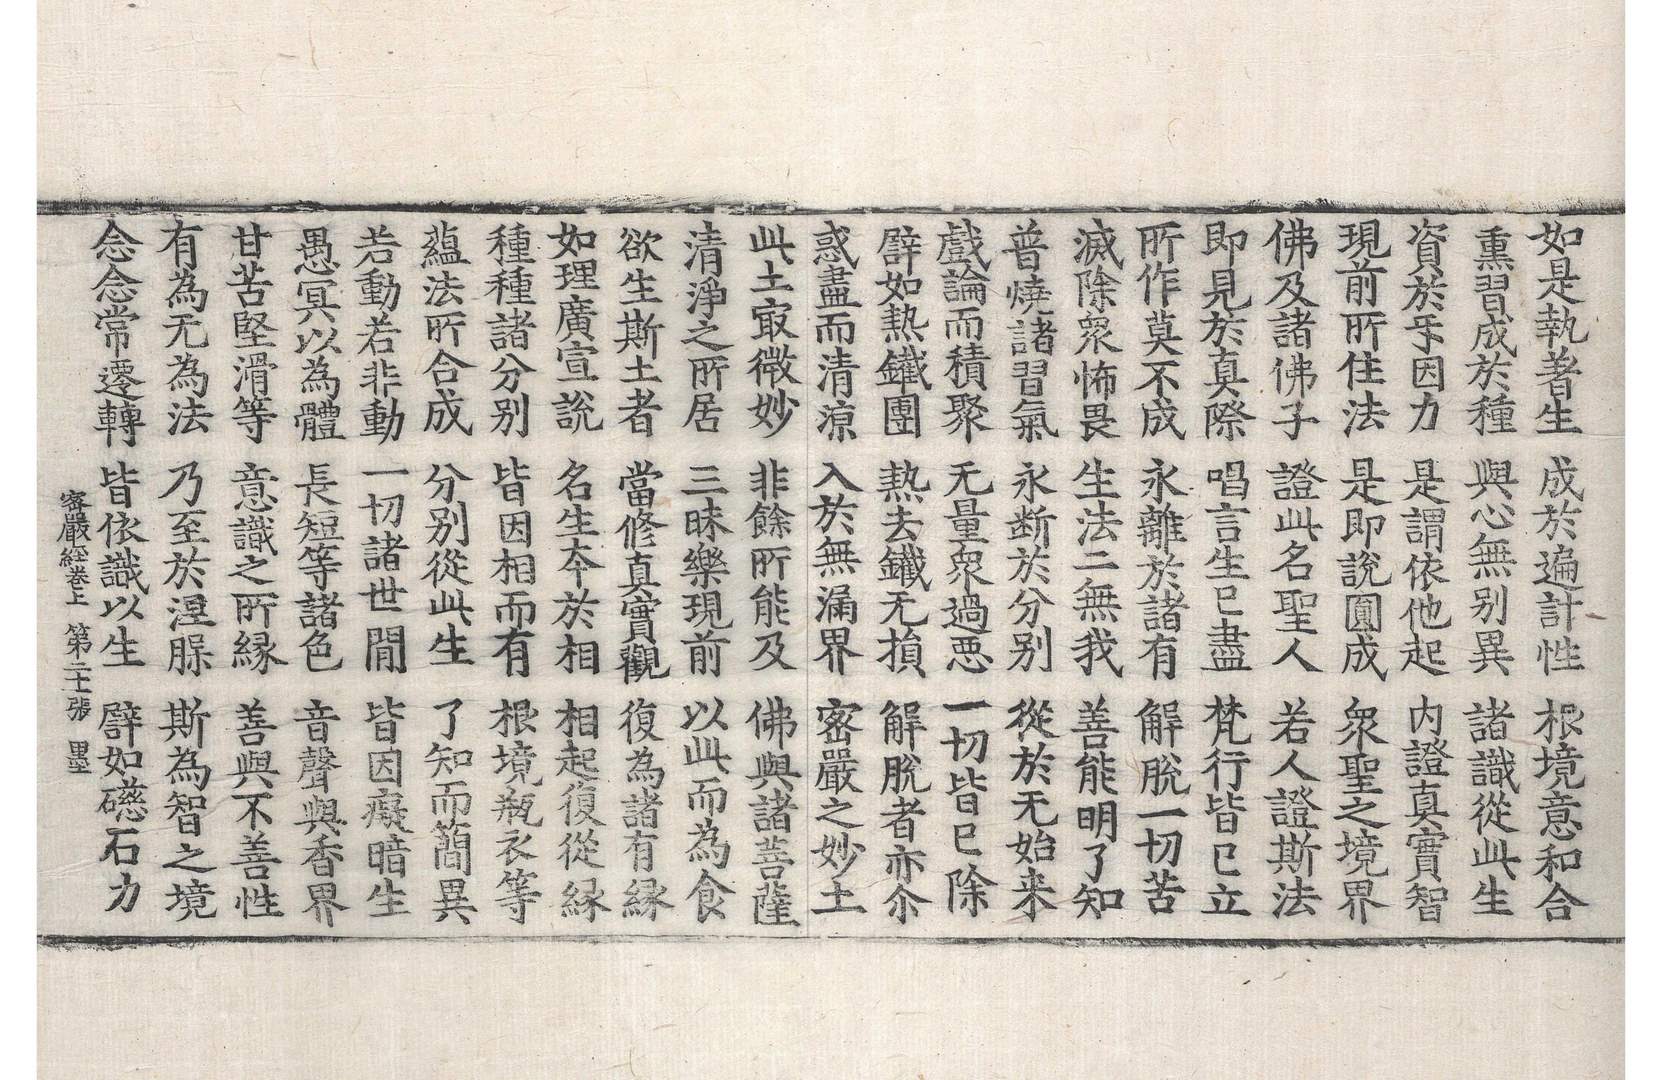 如是執著生 成於遍計性 根境意和合
熏習成於種 與心無別異 諸識從此生
資於互因力 是謂依他起 內證真實智
現前所住法 是即說圓成 眾聖之境界
佛及諸佛子 證此名聖人 若人證斯法
即見於真際 唱言生已盡 梵行皆已立
所作莫不成 永離於諸有 解脫一切苦
滅除眾怖畏 生法二無我 善能明了知
普燒諸習氣 永斷於分別 從於无始來
戲論而積聚 无量眾過惡 一切皆已除
譬如熱鐵團 熱去鐵无損 解脫者亦尒
惑盡而清涼 入於無漏界 密嚴之妙土
此土㝡微妙 非餘所能及 佛與諸菩薩
清淨之所居 三昧樂現前 以此而為食
欲生斯土者 當修真實觀 復為諸有緣
如理廣宣說 名生本於相 相起復從緣
種種諸分別 皆因相而有 根境瓶衣等
蘊法所合成 分別從此生 了知而簡異
若動若非動 一切諸世間 皆因癡暗生
愚冥以為體 長短等諸色 音聲與香界
甘苦堅滑等 意識之所緣 善與不善性
有為无為法 乃至於涅槃 斯為智之境
念念常遷轉 皆依識以生 譬如礠石力
密嚴經卷上 第二十張 墨